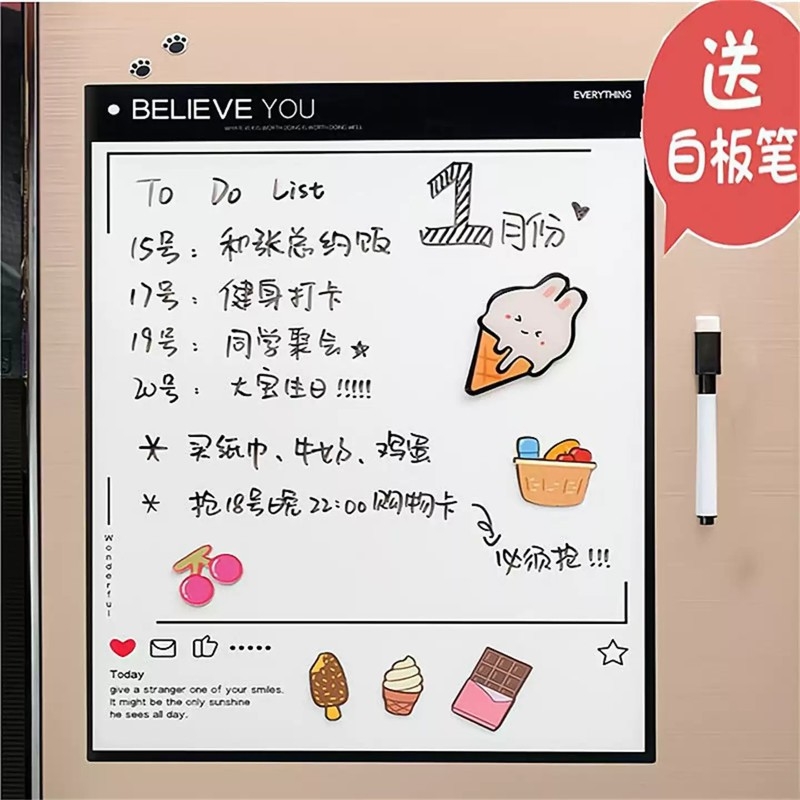 送
白板笔
BELIEVE YOU
EVERYTHING
To Do List
1月份
15号：和张总约饭
17号：健身打卡
19号：同学聚会
20号：大宝生日!!!!!
买纸巾、牛奶、鸡蛋
抢18号晚22:00购物卡
必须抢!!!
Wonderful
Today
give a stranger one of your smiles.
It might be the only sunshine
he sees all day.